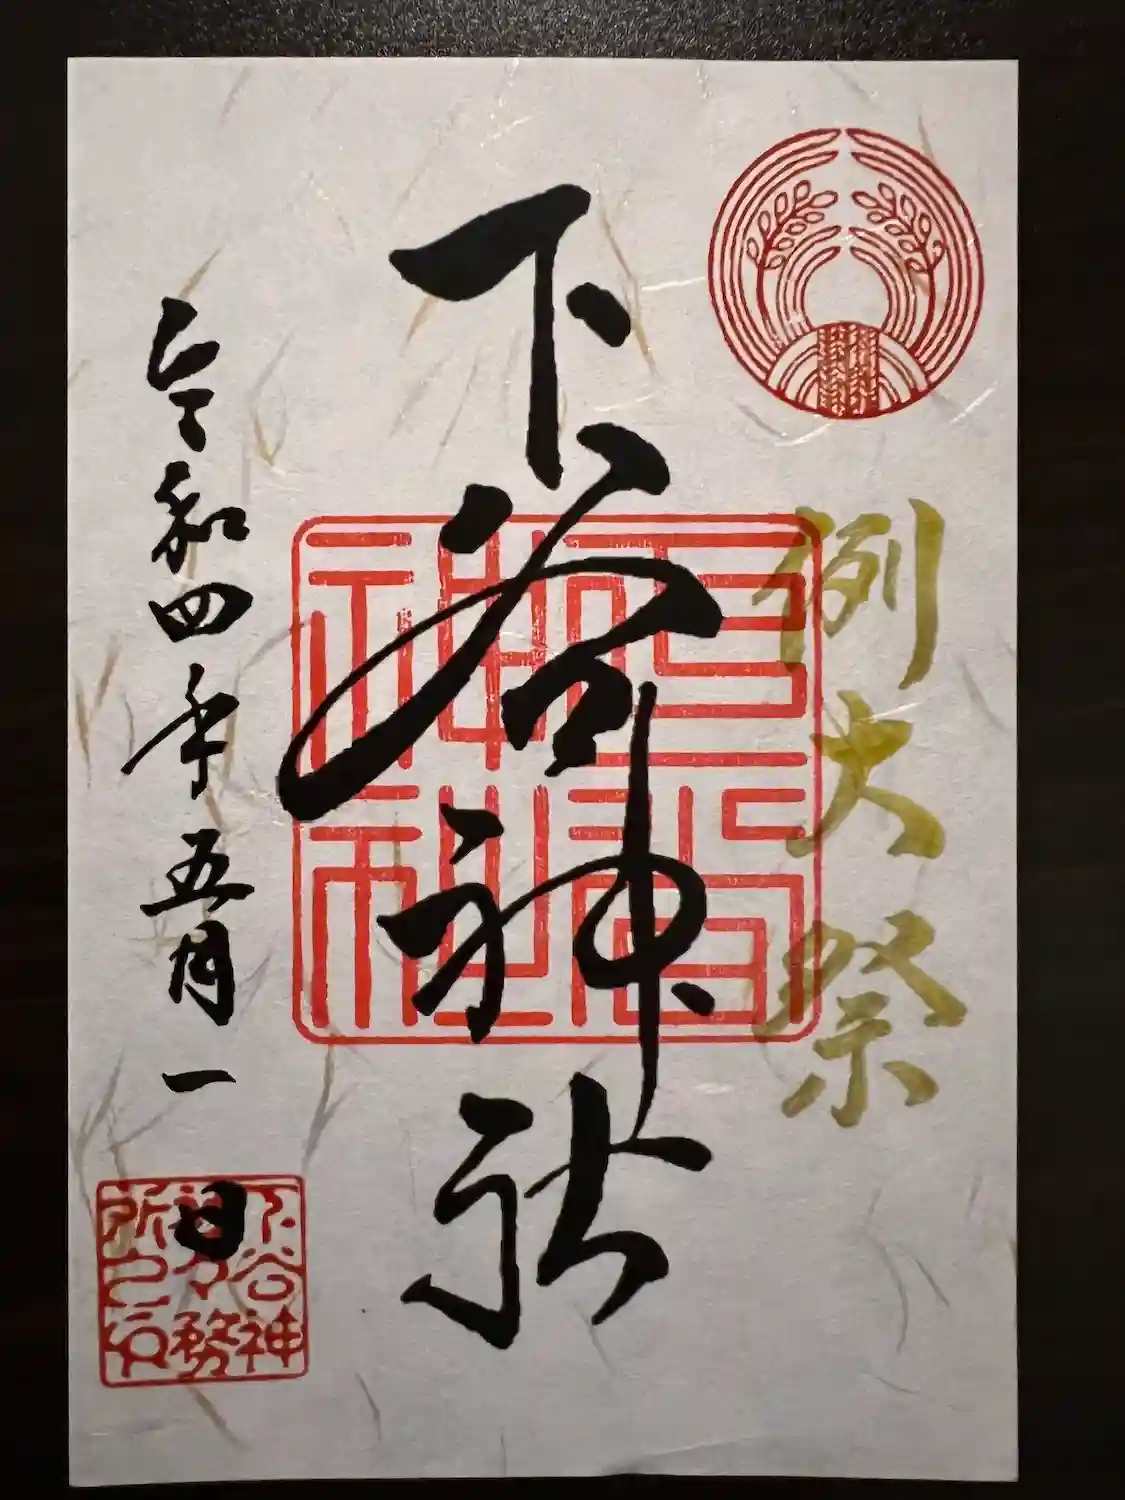 例大祭
下谷神社
下谷神社
令和四年五月一日
下谷神
社々務
所之印